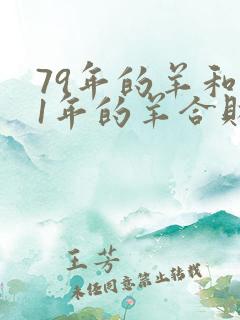 79年的羊和
1年的羊合财
王芳
未经同意禁止转载